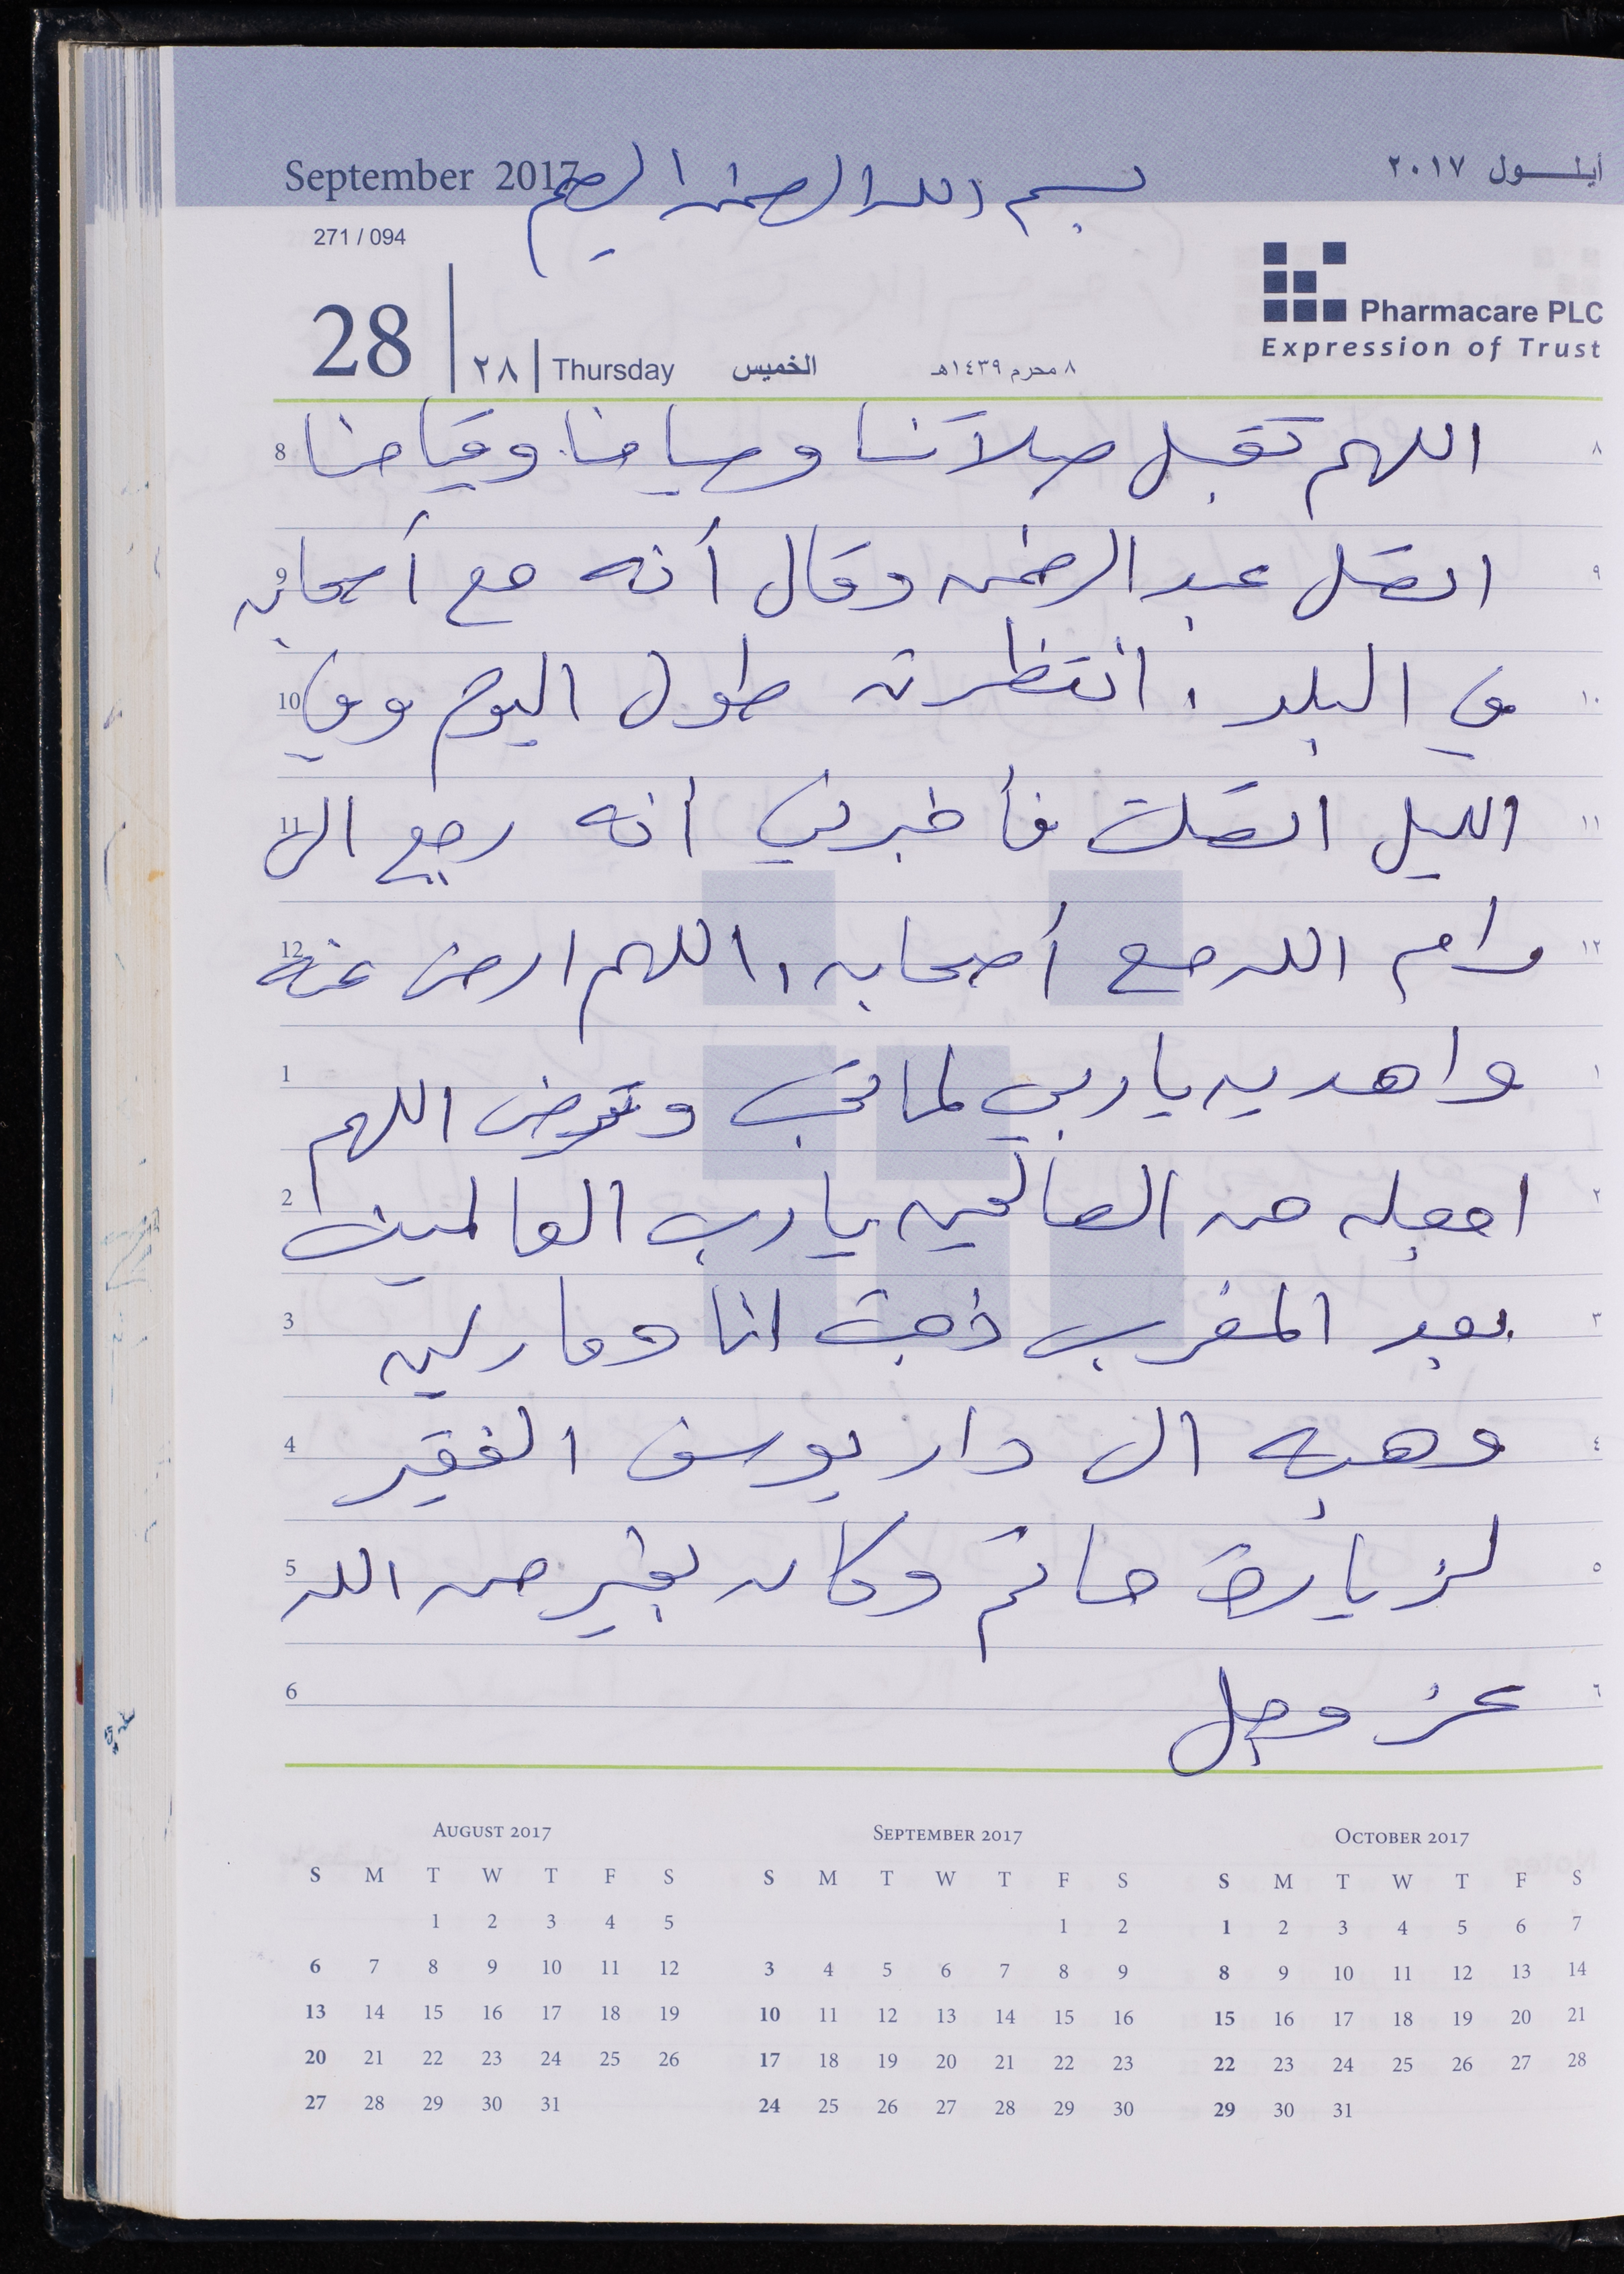 September 2017
أيلول ٢٠١٧
بسم الله الرحمن الرحيم
271 / 094
28 | ٢٨ | Thursday الخميس ٨ محرم ١٤٣٩هـ
Pharmacare PLC
Expression of Trust
8 اللهم تقبل صلاتنا وصيامنا وقيامنا ٨
9 اتصل عبد الرحمن وقال أنه مع أصحابه ٩
10 في البلد . انتظرته طول اليوم وفي ١٠
11 الليل اتصلت فأخبرني أنه رجع الى ١١
12 رام الله مع أصحابه , اللهم ارض عنه ١٢
1 واهديه يا ربي لما تحب وترضى اللهم ١
2 اجعله من الصالحين يا رب العالمين ٢
3 بعد المغرب ذهبت انا ومارلين ٣
4 وهبه الى دار يوسف الفقير ٤
5 لزيارة حاتم وكان بخير من الله ٥
6 عز وجل ٦
AUGUST 2017
S M T W T F S
1 2 3 4 5
6 7 8 9 10 11 12
13 14 15 16 17 18 19
20 21 22 23 24 25 26
27 28 29 30 31
SEPTEMBER 2017
S M T W T F S
1 2
3 4 5 6 7 8 9
10 11 12 13 14 15 16
17 18 19 20 21 22 23
24 25 26 27 28 29 30
OCTOBER 2017
S M T W T F S
1 2 3 4 5 6 7
8 9 10 11 12 13 14
15 16 17 18 19 20 21
22 23 24 25 26 27 28
29 30 31